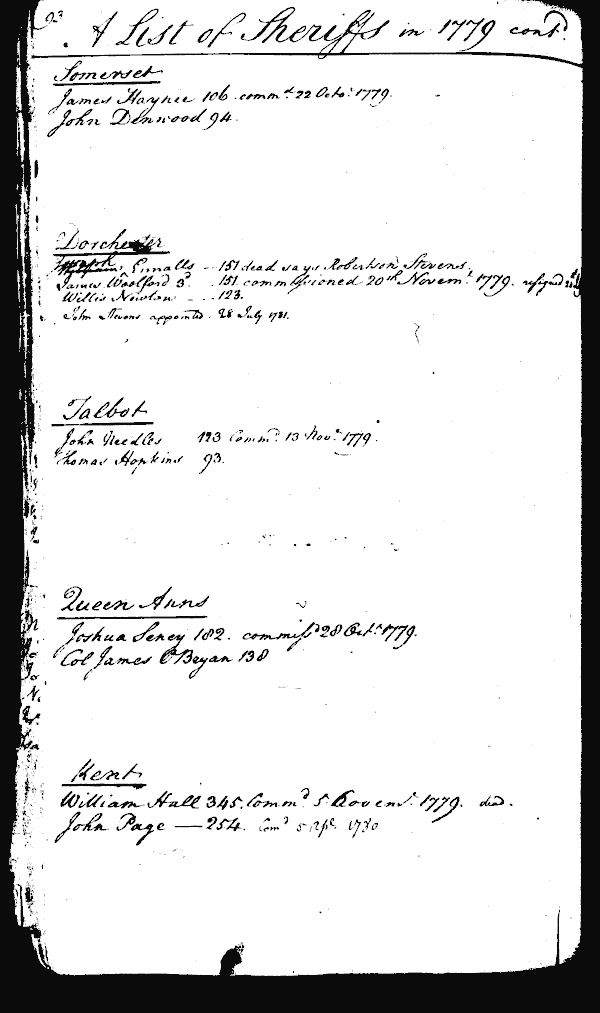 93
A List of Sheriffs in 1779 contd.
Somerset
James Haynie 106. commd. 22 Octo: 1779.
John Denwood 94.
Dorchester
Joseph Ennalls - 151 dead says Robertson Stevens.
James Woolford 3d. 151 commissioned 20th Novemr. 1779. resigned
Willis Newton - . . 123.
John Stevens appointed. 28 July 1781.
Talbot
John Needles 123 Commd. 13 Novr. 1779.
Thomas Hopkins 93.
Queen Anns
Joshua Seney 182. commissd 28 Octr. 1779.
Col James O Bryan 138
Kent
William Hall 345. Commd 5 Novemr. 1779. dead.
John Page — 254. Comd 5 Apl. 1780